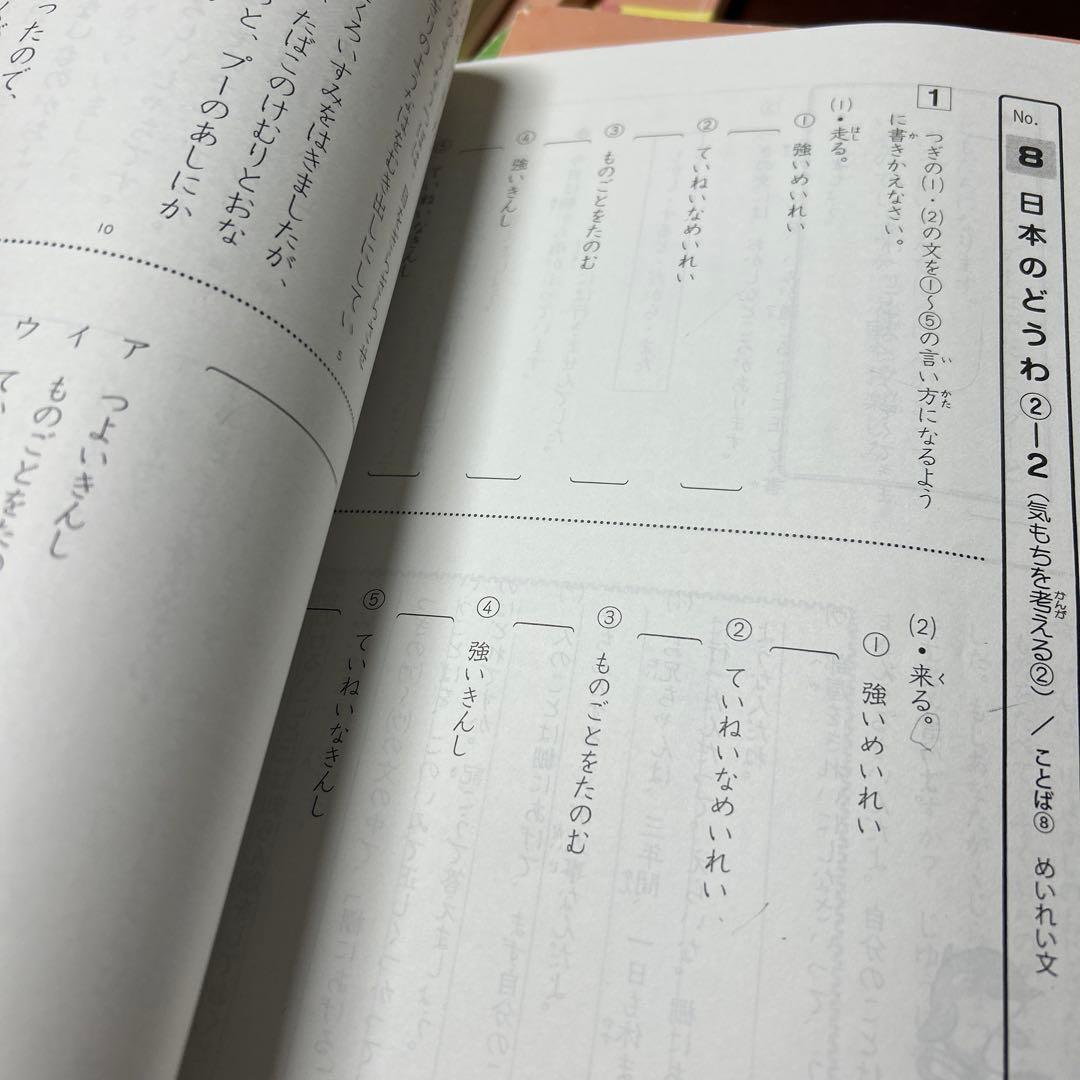 No.
8 日本のどうわ②ー2（気もちを考える②）／ことば⑧ めいれい文
かんが
1
つぎの(1)・(2)の文を①〜⑤の言い方になるよう
い
かた
に書きかえなさい。
か
(1)・走る。
はし
① 強いめいれい
② ていねいなめいれい
③ ものごとをたのむ
④ 強いきんし
⑤ ていねいなきんし
(2)・来る。
く
① 強いめいれい
② ていねいなめいれい
③ ものごとをたのむ
④ 強いきんし
⑤ ていねいなきんし
くろいすみをはきましたが、
たばこのけむりとおな
と、プーのあしにか
ったので、
5
10
ア つよいきんし
イ ものごとをたの
ウ てい